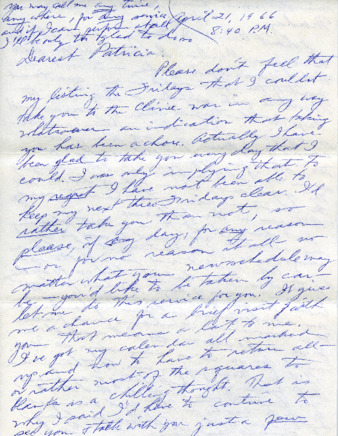 You may call me any time,
anywhere, for any service
and if I can perform it all
I'll be only too glad to do so
April 21, 1966
8:40 P.M.
Dearest Patricia:
Please don't feel that
my listing the Fridays that I couldn't
take you to the Clinic was in any way
whatsoever an indication that taking
you has been a chore. Actually I have
been glad to take you every day that I
could. I was only implying that to
my regret I have not been able to
keep my next three Fridays clear. I'd
rather take you than not, so
please, if any day, for any reason
- or for no reason at all no
matter what your new schedule may
be - you'd like to be taken by car
let me do this service for you. It gives
me a chance for a brief visit with
you that means a lot to me.
I've got my calendar all marked
up and now to have to return all -
or rather most of the squares to
blanks is a chilling thought. That is
why I said I'd have to continue to
see you & talk with you just a few